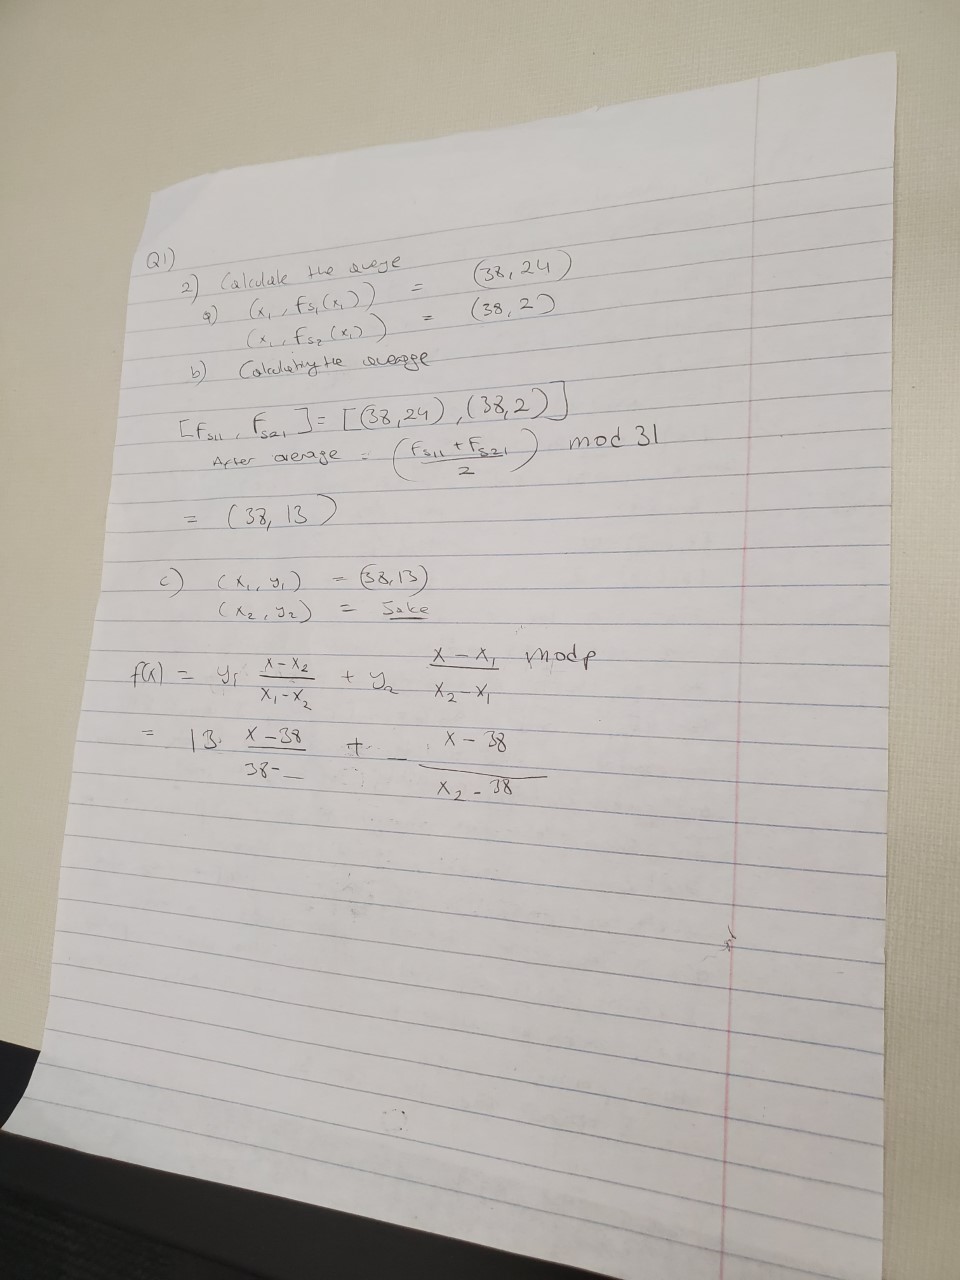 Q1)
2) Calculate the avege
a) (x₁, fs₁(x₁)) = (38, 24)
(x₁, fs₂(x₁)) = (38, 2)
b) Calculating the average
[Fs₁₁, Fs₂₁] = [(38,24), (38,2)]
After average = (Fs₁₁ + Fs₂₁ / 2) mod 31
= (38, 13)
c) (x₁, y₁) = (38,13)
(x₂, y₂) =
f(x) = y₁ x-x₂ / x₁-x₂ + y₂ x-x₁ / x₂-x₁ mod p
= 13. x-38 / 38-_ + _ x-38 / x₂-38